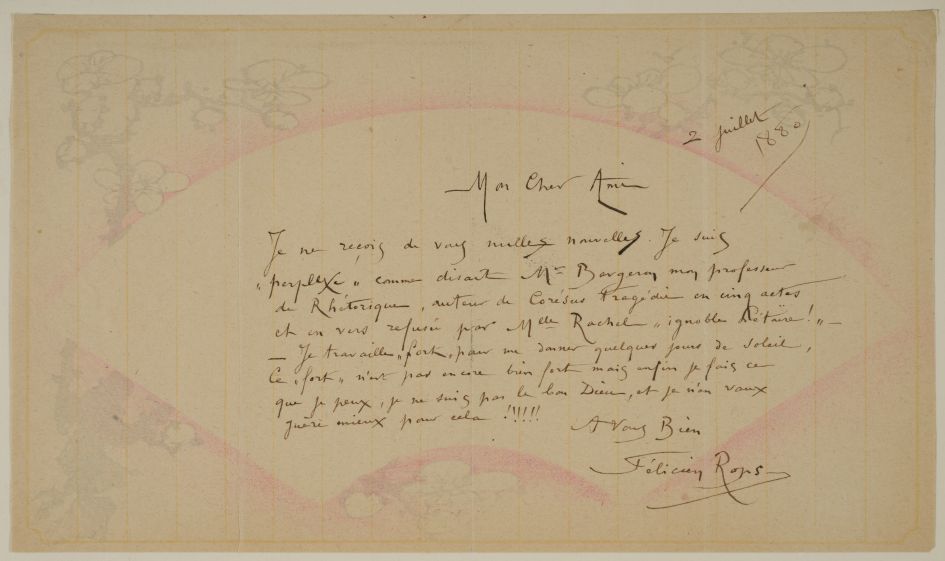 2 juillet
1880
Mon Cher Ami
Je ne reçois de vous nulles nouvelles. Je suis
„perplexe" comme disait Mr Bergeron mon professeur
de Rhétorique, auteur de Corésus tragédie en cinq actes
et en vers refusée par Melle Rachel „ignoble hétaïre!" —
— Je travaille „fort„ pour me donner quelques jours de soleil,
Ce „fort„ n'est pas encore bien fort mais enfin je fais ce
que je peux, je ne suis pas le bon Dieu, et je n'en vaux
guère mieux pour cela !!!!!!
A Vous Bien
Félicien Rops